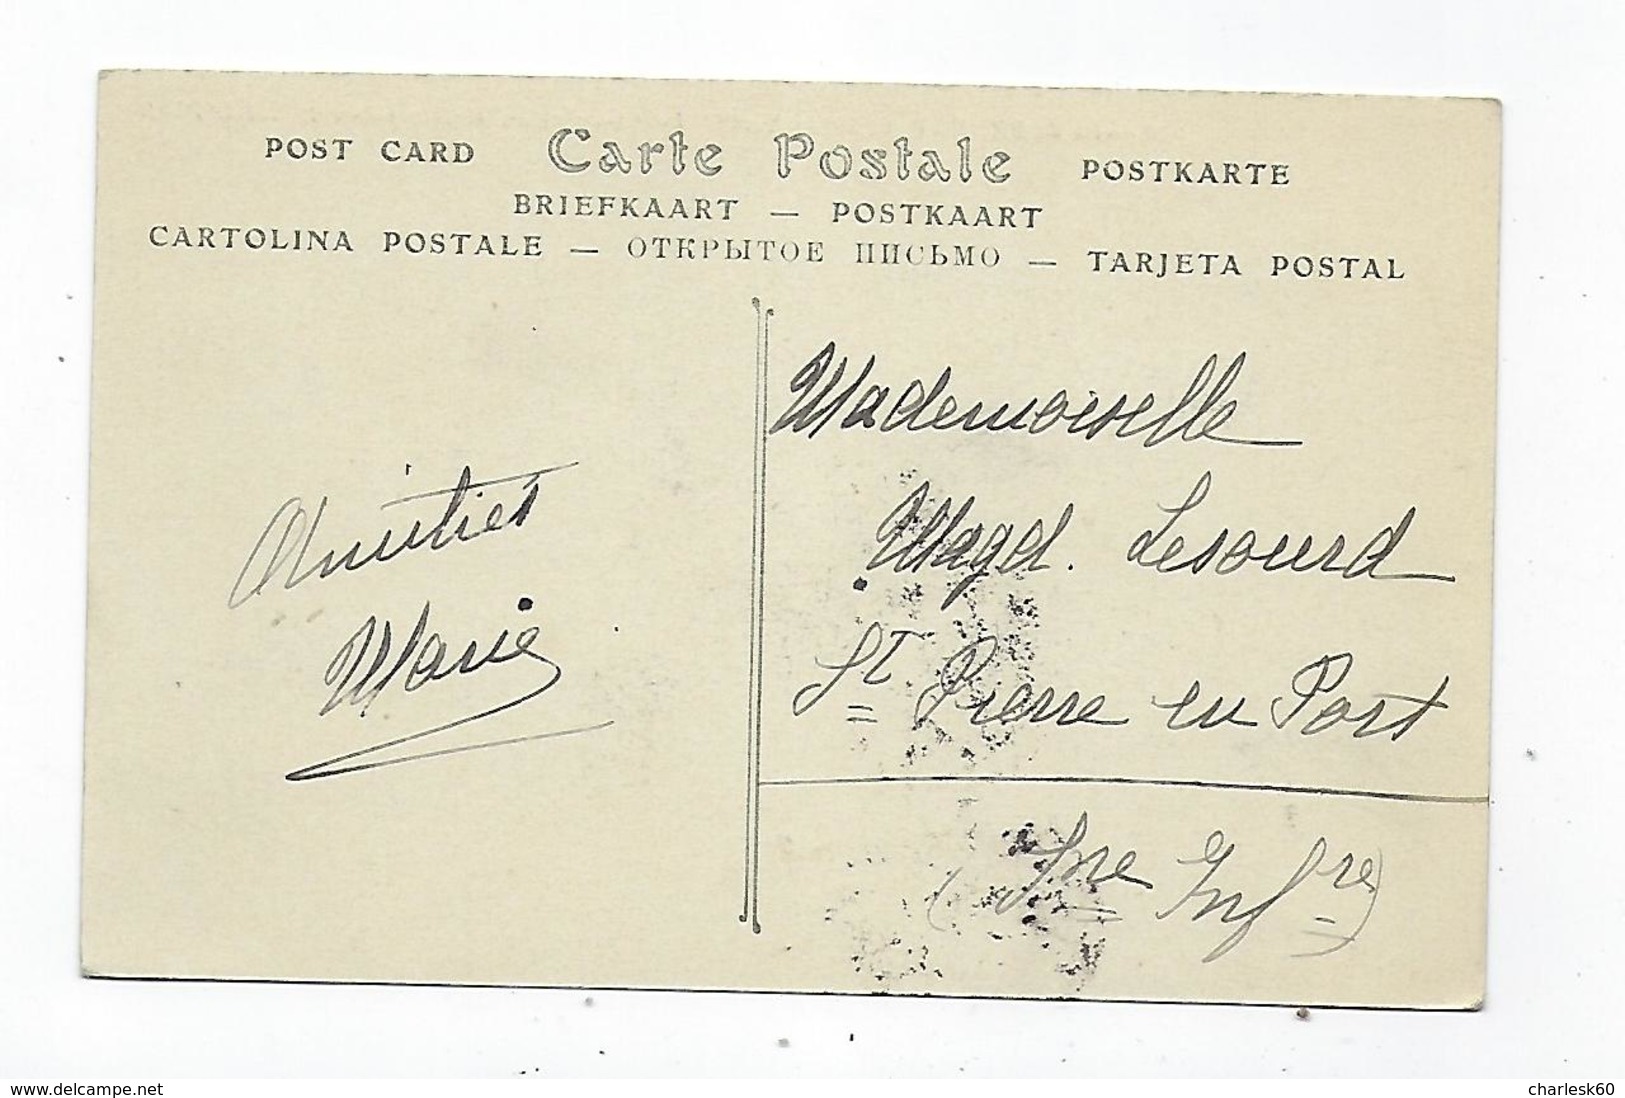 POST CARD Carte Postale POSTKARTE
BRIEFKAART — POSTKAART
CARTOLINA POSTALE — ОТКРЫТОЕ ПИСЬМО — TARJETA POSTAL
Amitiés
Marie
Mademoiselle
Magd. Lesourd
St Pierre en Port
(Sne Infre)
www.delcampe.net
charlesk60